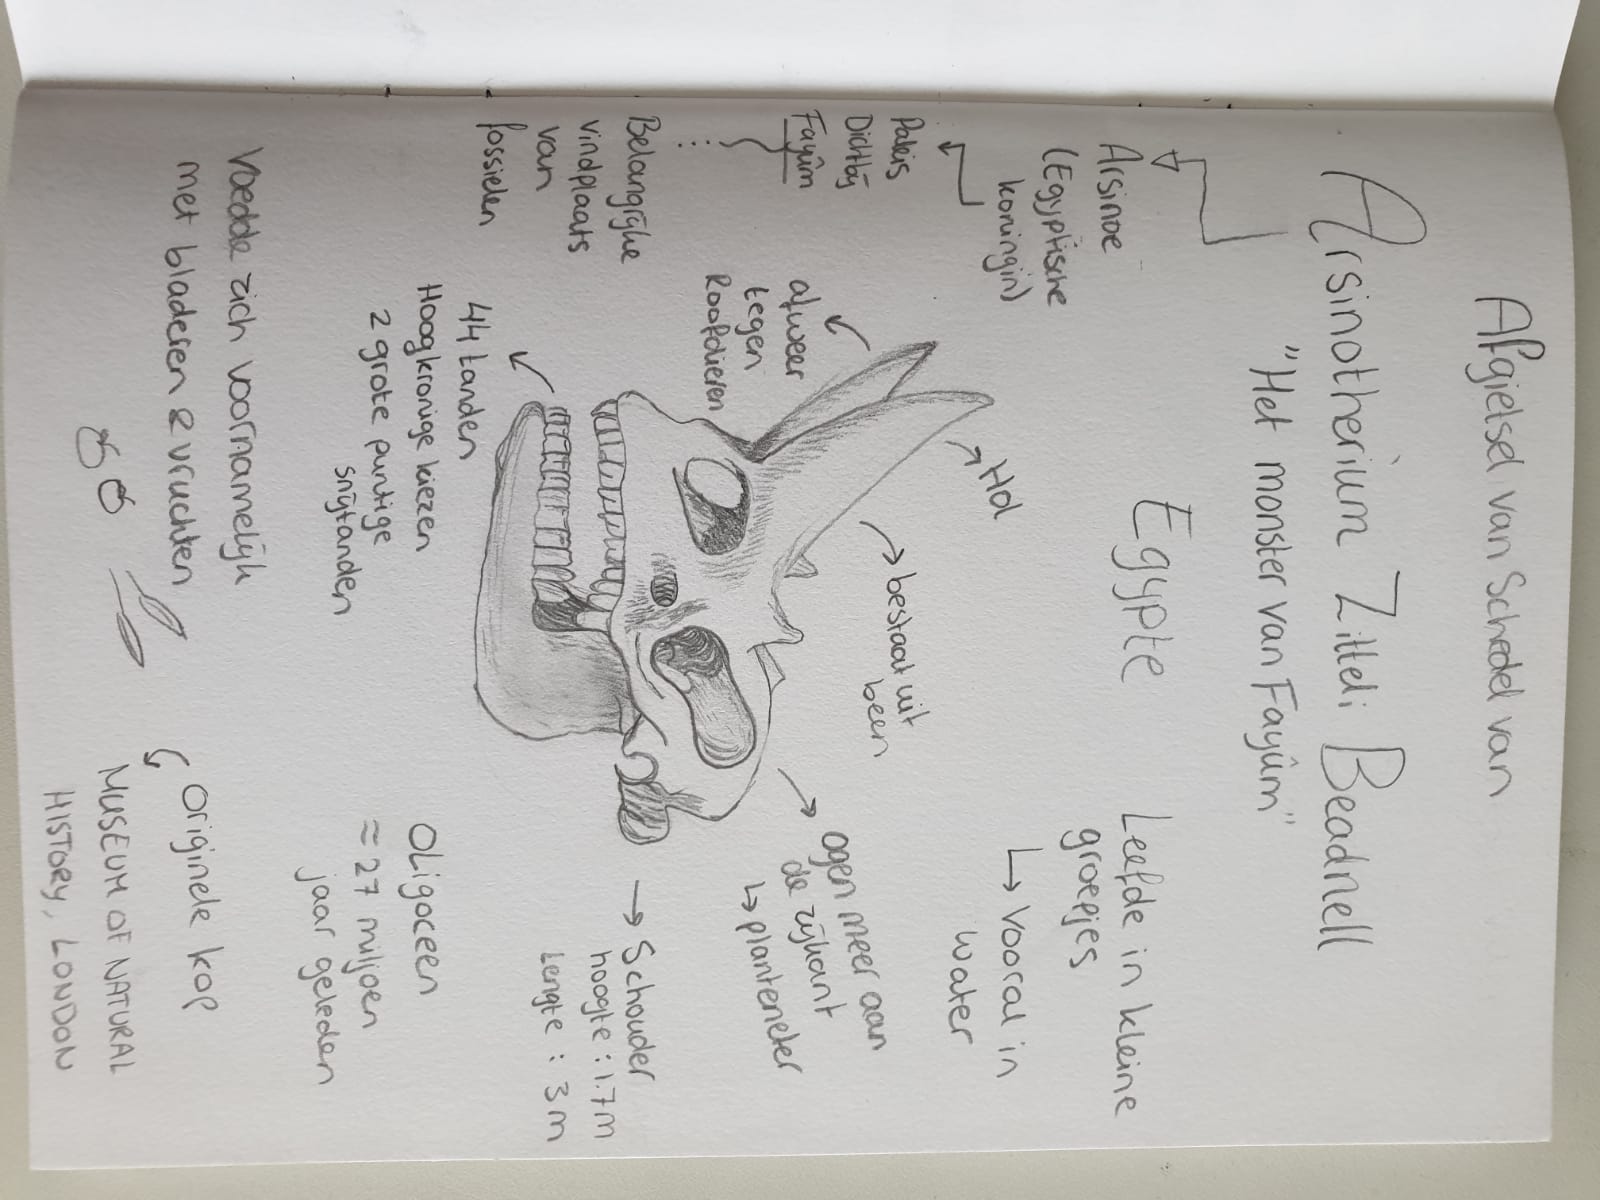 Afgietsel van Schedel van
Arsinotherium Zitteli Beadnell
"Het monster van Fayûm"
Egypte
Arsinoe
(Egyptische
koningin)
Paleis
Dichtbij
Fayûm
Belangrijke
vindplaats
van
fossielen
Hol
bestaat uit
been
afweer
tegen
Roofdieren
Leefde in kleine
groepjes
Vooral in
water
ogen meer aan
de zijkant
planteneter
Schouder
hoogte : 1.7m
Lengte : 3m
44 tanden
Hoogkronige kiezen
2 grote puntige
snijtanden
Oligoceen
≈ 27 miljoen
jaar geleden
Voedde zich voornamelijk
met bladeren & vruchten
Originele kop
MUSEUM OF NATURAL
HISTORY, LONDON